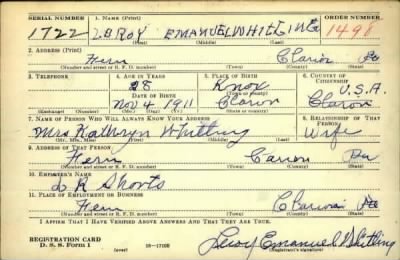 SERIAL NUMBER 1. NAME (Print) ORDER NUMBER
1722 LEROY EMANUEL WHITLING 1498
(First) (Middle) (Last)
2. ADDRESS (Print)
Fern Clarion Pa
(Number and street or R. F. D. number) (Town) (County) (State)
3. TELEPHONE 4. AGE IN YEARS 5. PLACE OF BIRTH 6. COUNTRY OF CITIZENSHIP
28 Knox U.S.A.
DATE OF BIRTH (Town)
Nov 4 1911 Clarion Clarion
(Exchange) (Number) (Mo.) (Day) (Yr.) (State or country)
7. NAME OF PERSON WHO WILL ALWAYS KNOW YOUR ADDRESS 8. RELATIONSHIP OF THAT PERSON
Mrs Kathryn Whitling Wife
(Mr., Mrs., Miss) (First) (Middle) (Last)
9. ADDRESS OF THAT PERSON
Fern Carion Pa
(Number and street or R. F. D. number) (Town) (County) (State)
10. EMPLOYER'S NAME
L R Shorts
11. PLACE OF EMPLOYMENT OR BUSINESS
Fern Clarion Pa
(Number and street or R. F. D. number) (Town) (County) (State)
I AFFIRM THAT I HAVE VERIFIED ABOVE ANSWERS AND THAT THEY ARE TRUE.
REGISTRATION CARD
D. S. S. Form 1 (over) 16-17105 Leroy Emanuel Whitling
(Registrant's signature)